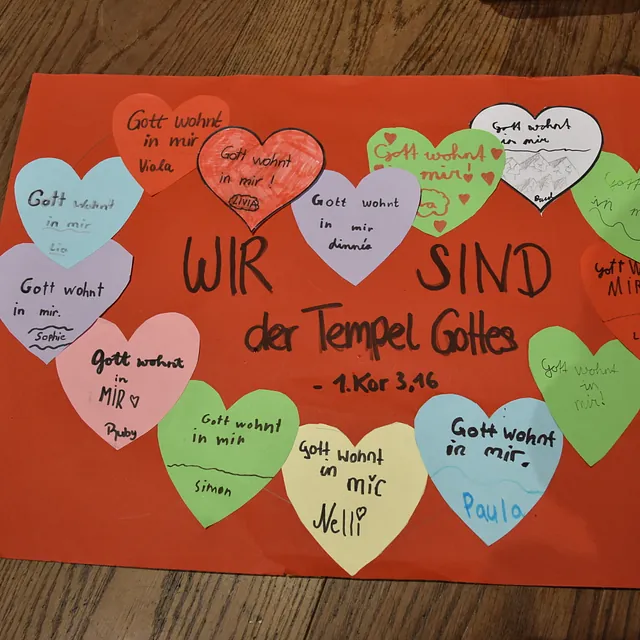 Gott wohnt
in mir
Viala
Gott wohnt
in mir!
LIVIA
Gott wohnt
in mir
Lia
Gott wohnt
in mir
dinnéa
Gott wohnt
mir!
Gott wohnt
in mir
Gott wohnt
in mir.
Sophie
WIR SIND
der Tempel Gottes
- 1.Kor 3,16
MIR
Gott wohnt
in
MIR
Ruby
Gott wohnt
in mir
Simon
Gott wohnt
in mir
Nelli
Gott wohnt
in mir.
Paula
Gott wohnt
in
mir!